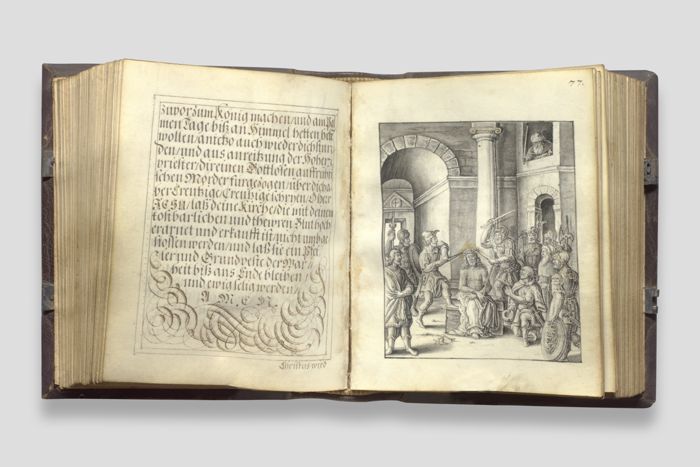 zuvor zum König machen/und am Pal
men Tage biß an Himmel hetten heb
wollen/anietzo auch wieder dich stun
den/und aus anreitzung der Hohen
priester/dir einen Gottlosen auffrüri
schen Mörder fürgezogen/über dich a
ber Creutzige/Creutzige schryen/O Herr
JESU/laß deine Kirche/die mit deinem
kostbarlichen und thewren Blut hoch
erarnet und erkaufft ist/nicht umbge
stossen werden/und laß sie ein Pfei
ler und Grundveste der War
heit biß ans Ende bleiben/
und ewig selig werden/
A M E N.
Christus wird
77.